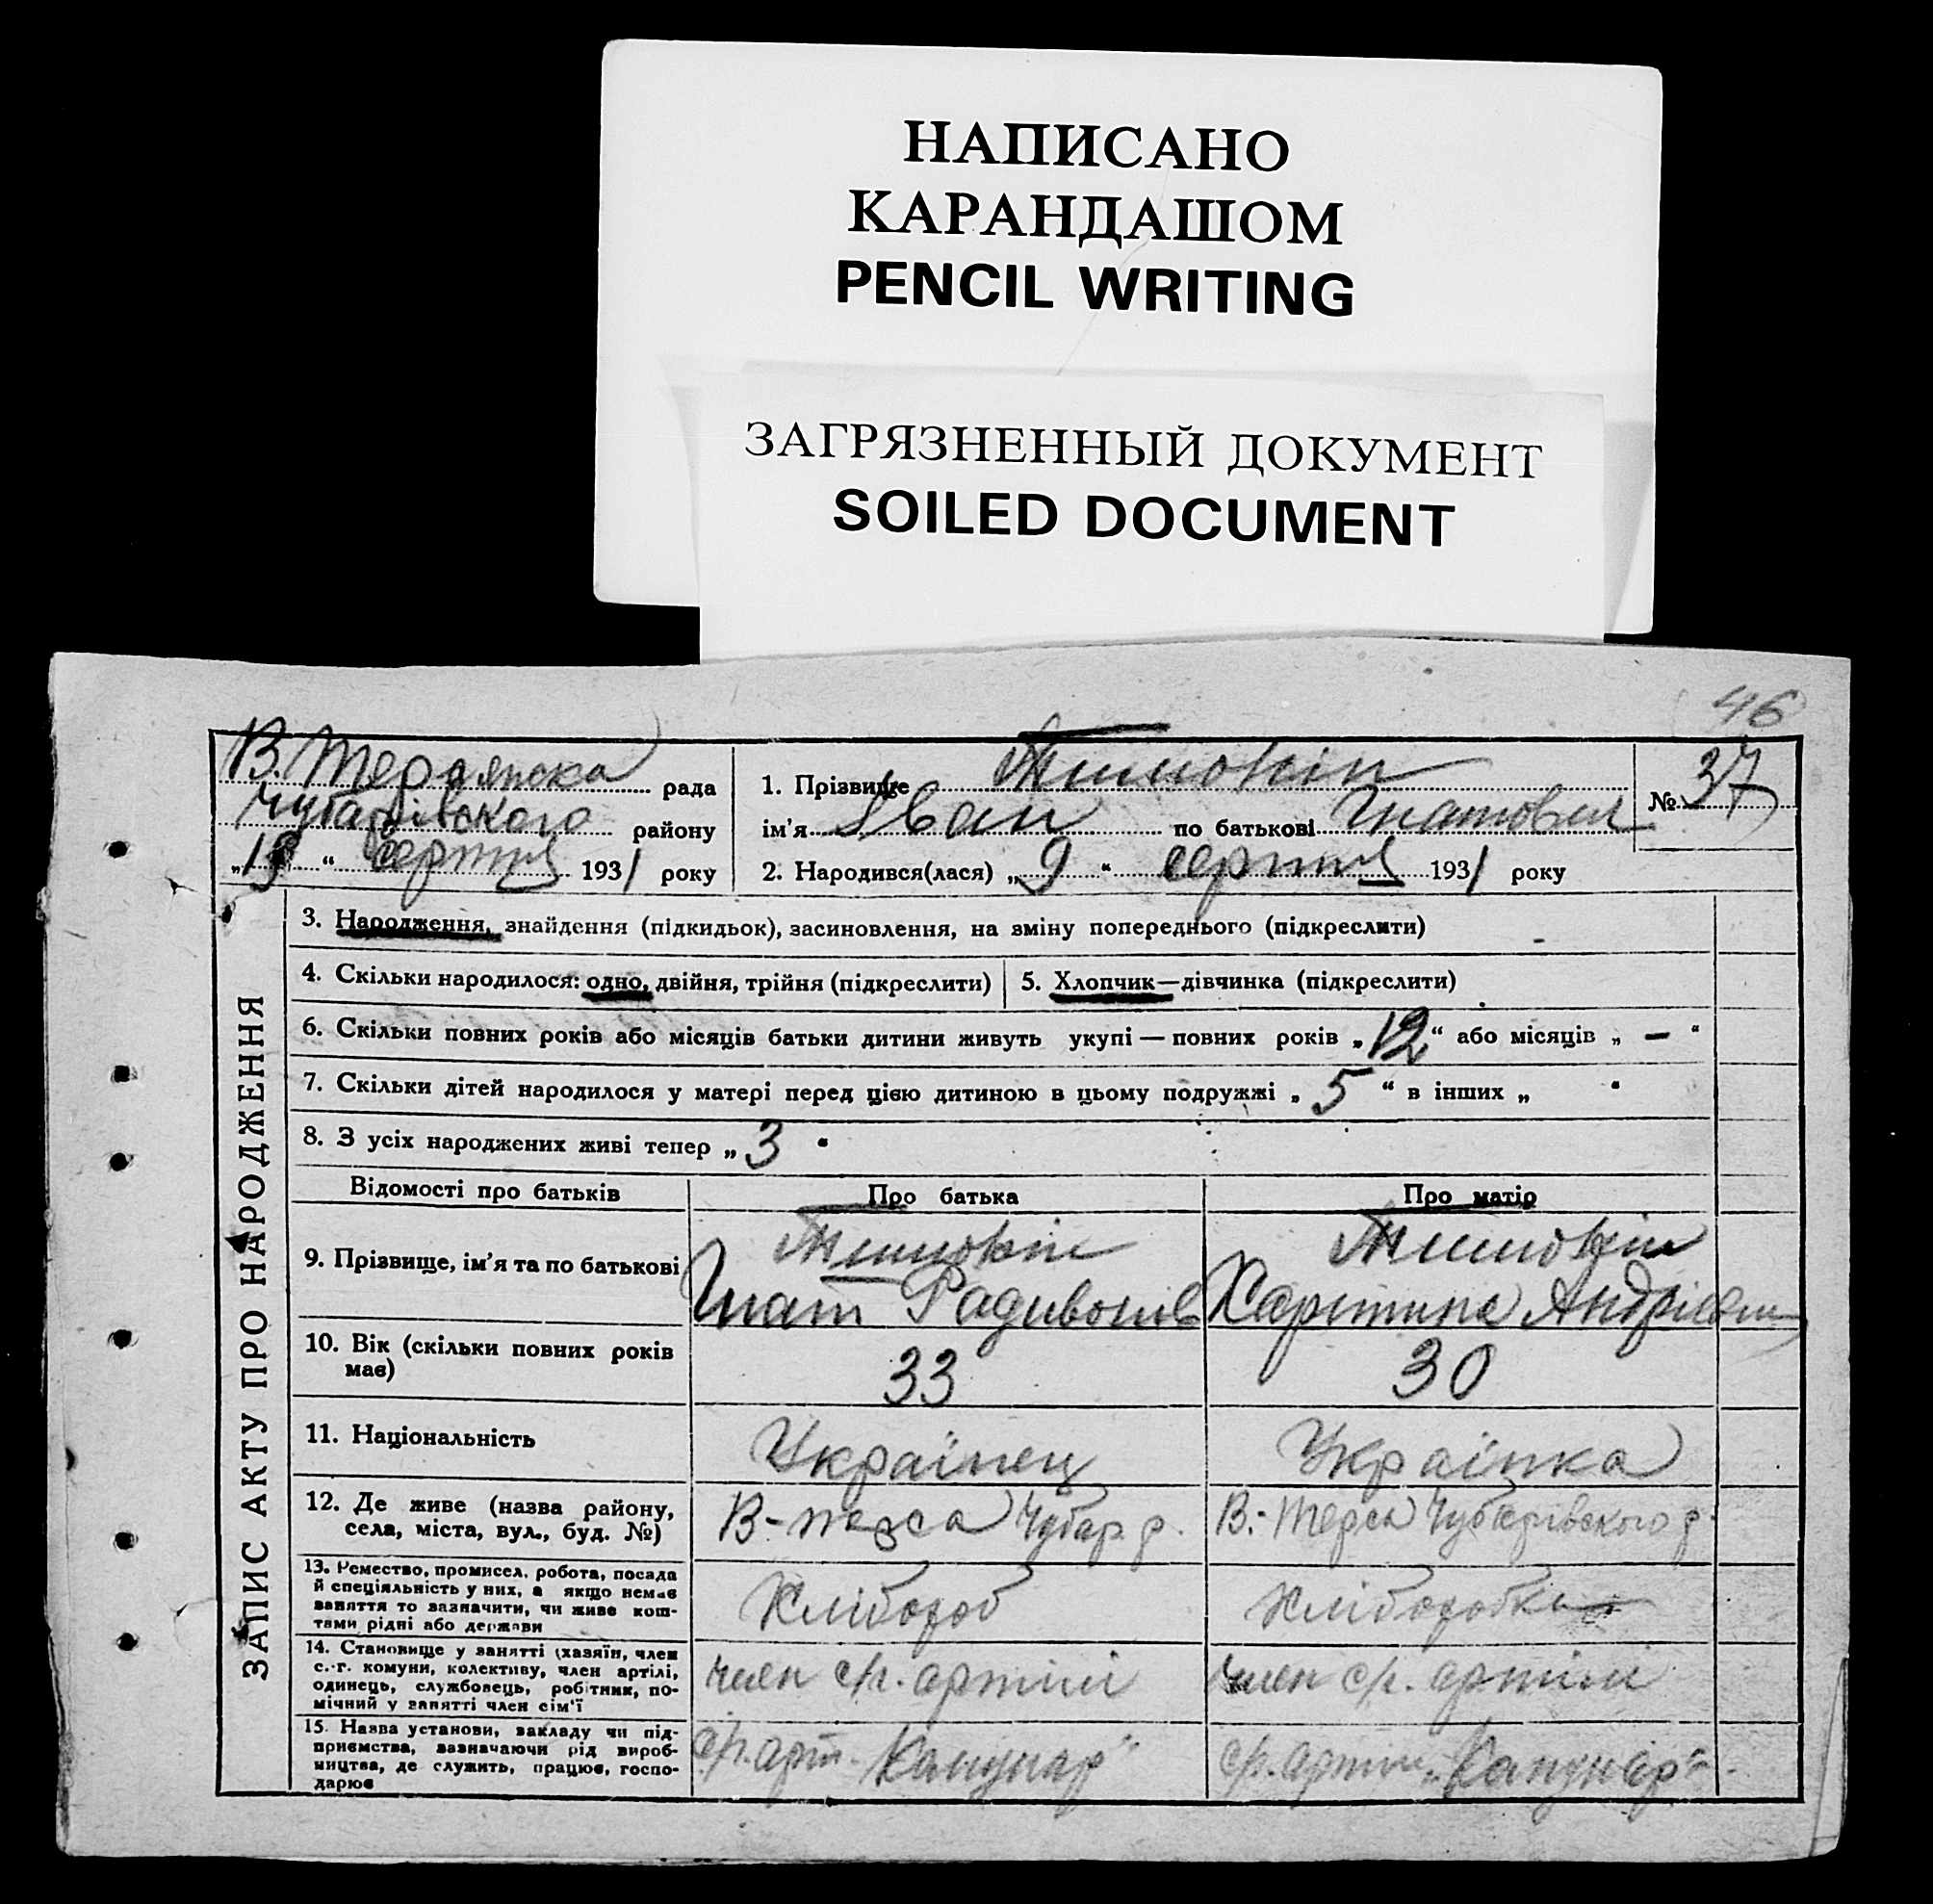 НАПИСАНО
КАРАНДАШОМ
PENCIL WRITING
ЗАГРЯЗНЕННЫЙ ДОКУМЕНТ
SOILED DOCUMENT
46
В. Терсянска рада
Чубарівського району
„19“ серпня 1931 року
1. Прізвище
ім'я Іван по батькові Гнатович
2. Народився(лася) „9“ серпня 1931 року
№ 37
ЗАПИС АКТУ ПРО НАРОДЖЕННЯ
3. Народження, знайдення (підкидьок), засиновлення, на зміну попереднього (підкреслити)
4. Скільки народилося: одно, двійня, трійня (підкреслити)
5. Хлопчик—дівчинка (підкреслити)
6. Скільки повних років або місяців батьки дитини живуть укупі — повних років „12“ або місяців „ — “
7. Скільки дітей народилося у матері перед цією дитиною в цьому подружжі „5“ в інших „ “
8. З усіх народжених живі тепер „3“
Відомості про батьків
Про батька
Про матір
9. Прізвище, ім'я та по батькові
Гнат Радивонов
Андріевна
10. Вік (скільки повних років
має)
33
30
11. Національність
Українец
Українка
12. Де живе (назва району,
села, міста, вул., буд. №)
В-терса Чубар. р.
В.-Терса Чубарівского р.
13. Ремество, промисел, робота, посада
й спеціяльність у них, а якщо немає
заняття то зазначити, чи живе кош-
тами рідні або держави
Хлібороб
Хлібороб
14. Становище у занятті (хазяїн, член
с.-г. комуни, колективу, член артілі,
одинець, службовець, робітник, по-
мічний у занятті член сім'ї
член с/г. артілі
член с/г. артілі
15. Назва установи, закладу чи під-
приємства, зазначаючи рід вироб-
ництва, де служить, працює, госпо-
дарює
с/г. арт.
с/г. артіл